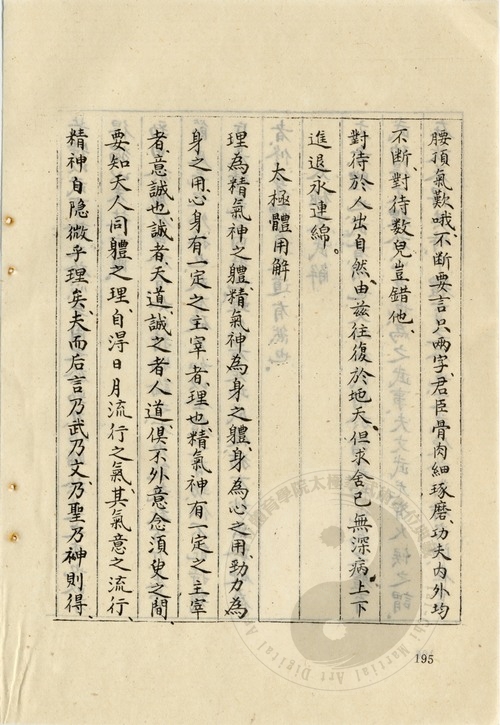 腰頂氣歎哦、不斷要言只兩字、君臣骨肉細琢磨、功夫内外均
不斷、對待數兒豈錯他、
對待於人出自然、由兹往復於地天、但求舍己無深病、上下
進退永連綿。
太極體用解
理為精氣神之體、精氣神為身之體、身為心之用、勁力為
身之用、心身有一定之主宰者、理也、精氣神有一定之主宰
者、意誠也、誠者、天道、誠之者、人道、俱不外意念須臾之間、
要知天人同體之理、自得日月流行之氣、其氣意之流行、
精神自隐微乎理矣、夫而后言乃武乃文、乃聖乃神則得、
195